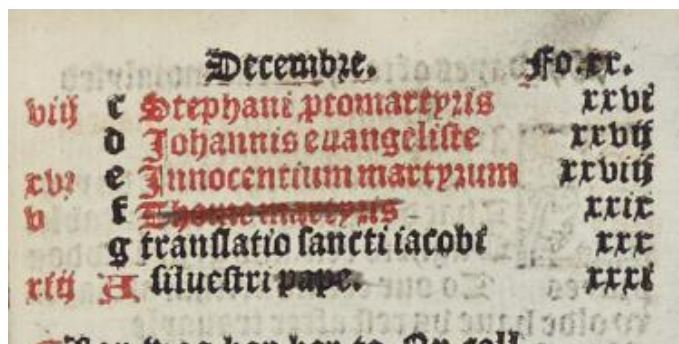 Decembre. Fo xx.
viij c Stephani ptomartyris xxvi
d Johannis euangeliste xxvij
xvi e Innocentium martyrum xxviij
v f Thome martyris xxix
g translatio sancti iacobi xxx
xiij A siluestri pape. xxxi